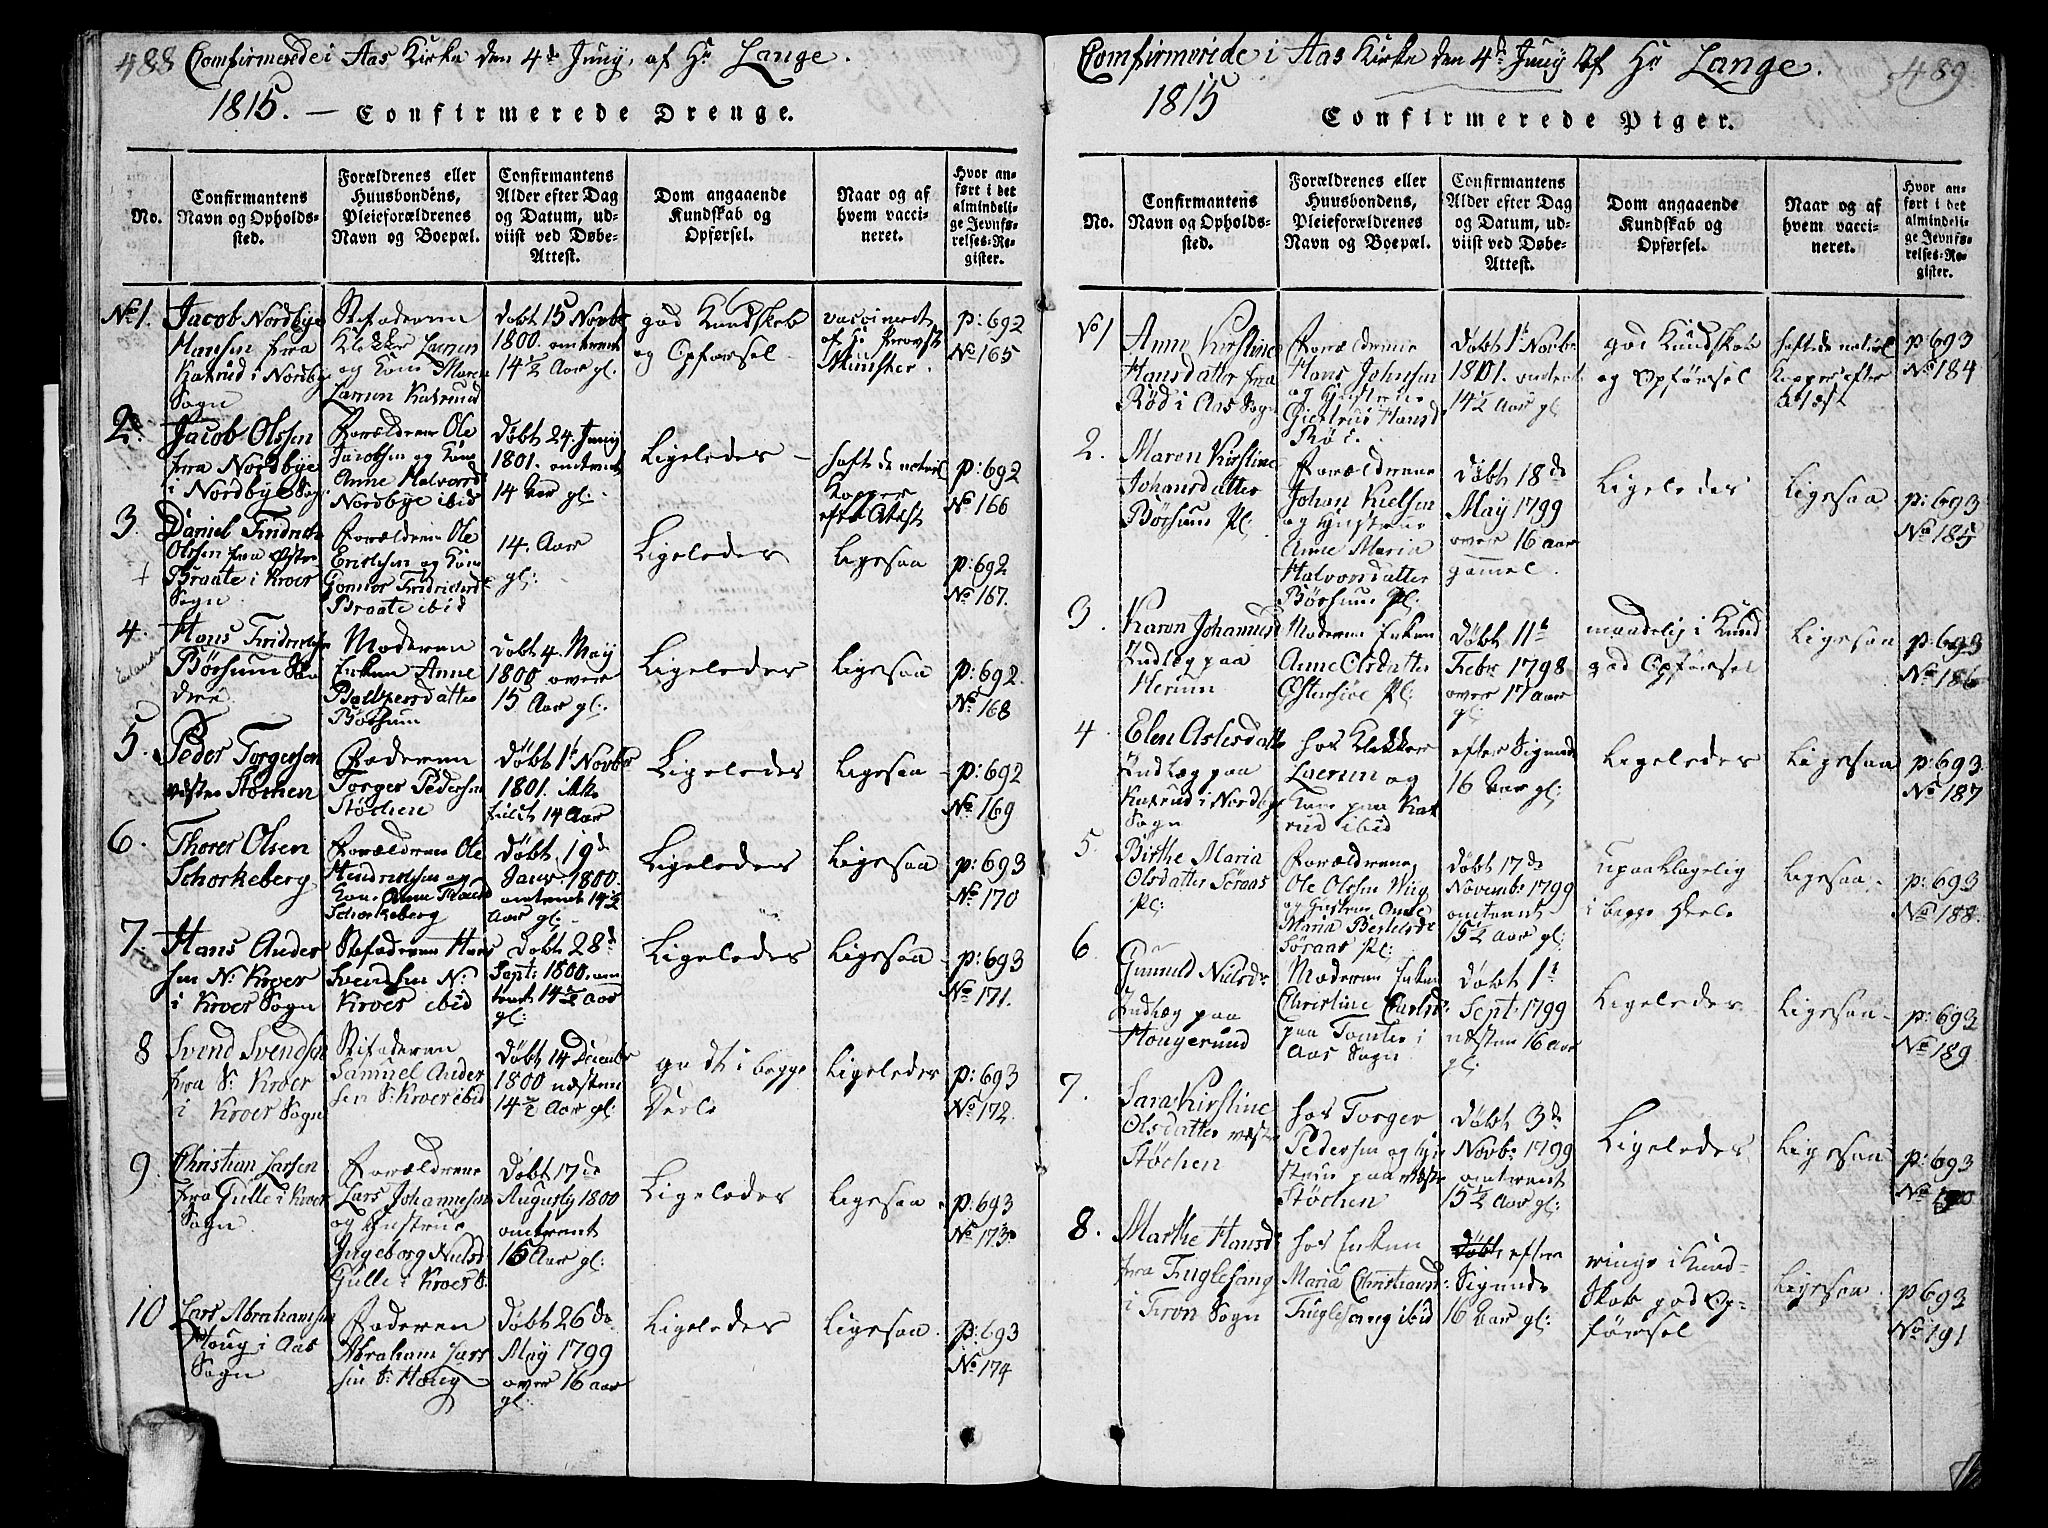 488 Confirmerede i Aas Kirke den 4de Juny, af Hr Lange.
1815. — Confirmerede Drenge.
No.
Confirmantens Navn og Opholds-sted.
Forældrenes eller Huusbondens, Pleieforældrenes Navn og Boepæl.
Confirmantens Alder efter Dag og Datum, ud-viist ved Døbe-Attest.
Dom angaaende Kundskab og Opførsel.
Naar og af hvem vacci-neret.
Hvor an-ført i det almindeli-ge Jevnfø-relses-Re-gister.
No 1.
Jacob Nordbye
Hansen fra
Katrud i Nordby
Sogn
Stifaderen
Klokker Larsen
og Kone Maren
Larsen Katrud
døbt 15 Novbr
1800. omtrent
14½ Aar gl.
god Kundskab
og Opførsel
vaccineret
af Hr Provst
Münster.
p: 692
No 165
2.
Jacob Olsen
fra Nordbye
i Nordbye Sogn
Forældrene Ole
Jacobsen og Kone
Anne Halvorsd
Nordbye ibid
døbt 24. Juny
1801. omtrent
14 Aar gl:
Ligeledes
haft de naturl
Kopper
efter Attest
p: 692
No 166
3.
Daniel Fridrich
Olssen fra Østre
Braate i Kroer
Sogn
Forældrene Ole
Erichsen og Kone
Fridrichsd
Braate ibid
14. Aar
gl:
Ligeledes
Ligesaa
p: 692
No 167.
4.
Hans Fridrichsen
Børsum
Moderen
Enken Anne
Børsum
døbt 4. May
1800 over
15 Aar gl:
Ligeledes
Ligesaa
p: 692.
No 168
5.
Peder Torgersen
vestre Støchen
Faderen
Torger Pedersen
Støchen
Døbt 1t Novbr
1801. ikke
fuldt 14 Aar
Ligeledes
Ligesaa
p: 692
No 169
6.
Thorer Olsen
Schorkeberg
Forældrene Ole
Hendrichsen og
Kone Anne
Schorkeberg
Døbt 19d
Janr. 1800.
omtrent 14½
Aar gl:
Ligeledes
Ligesaa
p: 693
No 170
7.
Hans Ander
sen N. Kroer
i Kroer Sogn
Stifaderen Hans
Svendsen N.
Kroer ibid
Døbt 28d
Sept: 1800. om
trent 14½ Aar
gl:
Ligeledes
Ligesaa
p: 693
No 171.
8
Svend Svendsen
fra S. Kroer
i Kroer Sogn
Stifaderen
Samuel Ander
sen S. Kroer ibid
Døbt 14 December
1800 næsten
14½ Aar gl:
godt i begge
Deele
Ligeledes
p: 693
No 172.
9.
Christian Larsen
fra Gulle i Kroer
Sogn
Forældrene
Lars Johannesen
og Hustrue
Ingeborg Nielsd
Gulle i Kroer S.
Døbt 17de
Augusty 1800
omtrent
15 Aar gl:
Ligeledes
Ligesaa
p: 693
No 173.
10
Lars Abrahamsen
Houg i Aas
Sogn
Faderen
Abraham Lars
sen S. Houg
Døbt 26de
May 1799
over 16 aar
gl:
Ligeledes
Ligesaa.
p: 693
No 174
Comfirmerede i Aas Kirke den 4de Juny Af Hr Lange. 489.
1815
Confirmerede Piger.
No.
Confirmantens Navn og Opholds-sted.
Forældrenes eller Huusbondens, Pleieforældrenes Navn og Boepæl.
Confirmantens Alder efter Dag og Datum, ud-viist ved Døbe-Attest.
Dom angaaende Kundskab og Opførsel.
Naar og af hvem vacci-neret.
Hvor an-ført i det almindeli-ge Jevnfø-relses-Re-gister.
No 1
Anne Kirstine
Hansdatter fra
Rød i Aas Sogn
Forældrene
Hans Johnsen
og Hustrue
Giertrud Hansd
Rød.
Døbt 1t Novbr
1801. omtrent
14½ Aar gl
god Kundskab
og Opførsel
hafte de naturl
Kopper efter
Attest
p: 693
No 184
2.
Maren Kirstine
Johansdatter
Børsum Pl:
Forældrene
Johan Nielsen
og Hustrue
Anne Maria
Halvorsdatter
Børsum Pl:
Døbt 18de
May 1799
over 16 aar
gamel.
Ligeledes
Ligesaa
p: 693
No 185
3.
Karen Johannesd
Indlæg paa
Herum
Moderen Enken
Anne Olsdatter
Østensiøe Pl:
Døbt 11t
Febr 1798
over 17 aar
gl:
maadelig i Kund
god Opførsel
Ligesaa
p: 693
No 186
4
Elen Aslesdatter
Indlæg paa
Katrud i Nordby
Sogn
hos Klokker
Larsen og
Kone paa Kat
rud ibid
efter Sigende
16 Aar gl:
Ligeledes
Ligesaa
p: 693.
No 187
5.
Birthe Maria
Olsdatter Søraas
Pl:
Forældrene
Ole Olssen Wiig
og Hustrue Anne
Maria Bertelsd
Søraas Pl:
Døbt 17de
Novembr 1799
omtrent
15½ Aar gl:
upaaklagelig
i begge Deele
Ligesaa
p: 693
No 188.
6
Gunuld Nielsdr
Indlæg paa
Hougerund
Moderen Enken
Christine Carlsd:
paa Tomter i
Aas Sogn
Døbt 1t
Sept: 1799
næsten 16 aar
gl:
Ligeledes
Ligesaa
p: 693
No 189
7.
Sara Kirstine
Olsdatter vestre
Støchen
hos Torger
Pedersen og Hu
strue paa vestre
Støchen
Døbt 3de
Novbr 1799
omtrent
15½ Aar gl:
Ligeledes
Ligesaa
p: 693
No 190
8.
Marthe Hansd
fra Fuglesang
i Fron Sogn
hos Enken
Maria Christiansd:
Fuglesang ibid
Døbt efter
Sigende
16 Aar gl:
ringe i Kund-
skab god Op-
førsel
Ligesaa
p 693
No 191